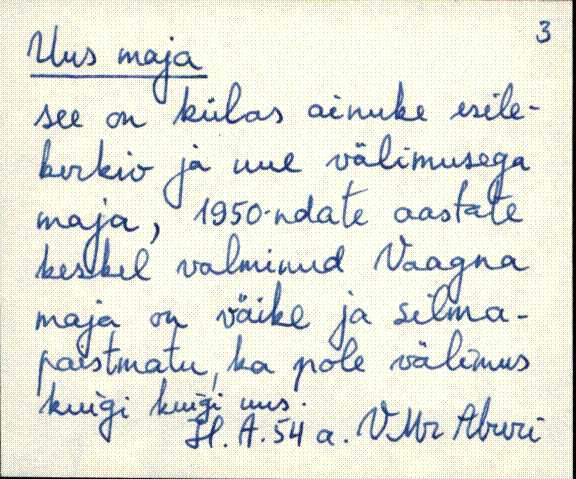 3
Uus maja
see on külas ainuke esile-
kerkiv ja uue välimusega
maja, 1950-ndate aastate
keskel valminud Vaagna
maja on väike ja silma-
paistmatu, ka pole välimus
kuigi kuigi uus.
H. A. 54 a. VMr Aburi